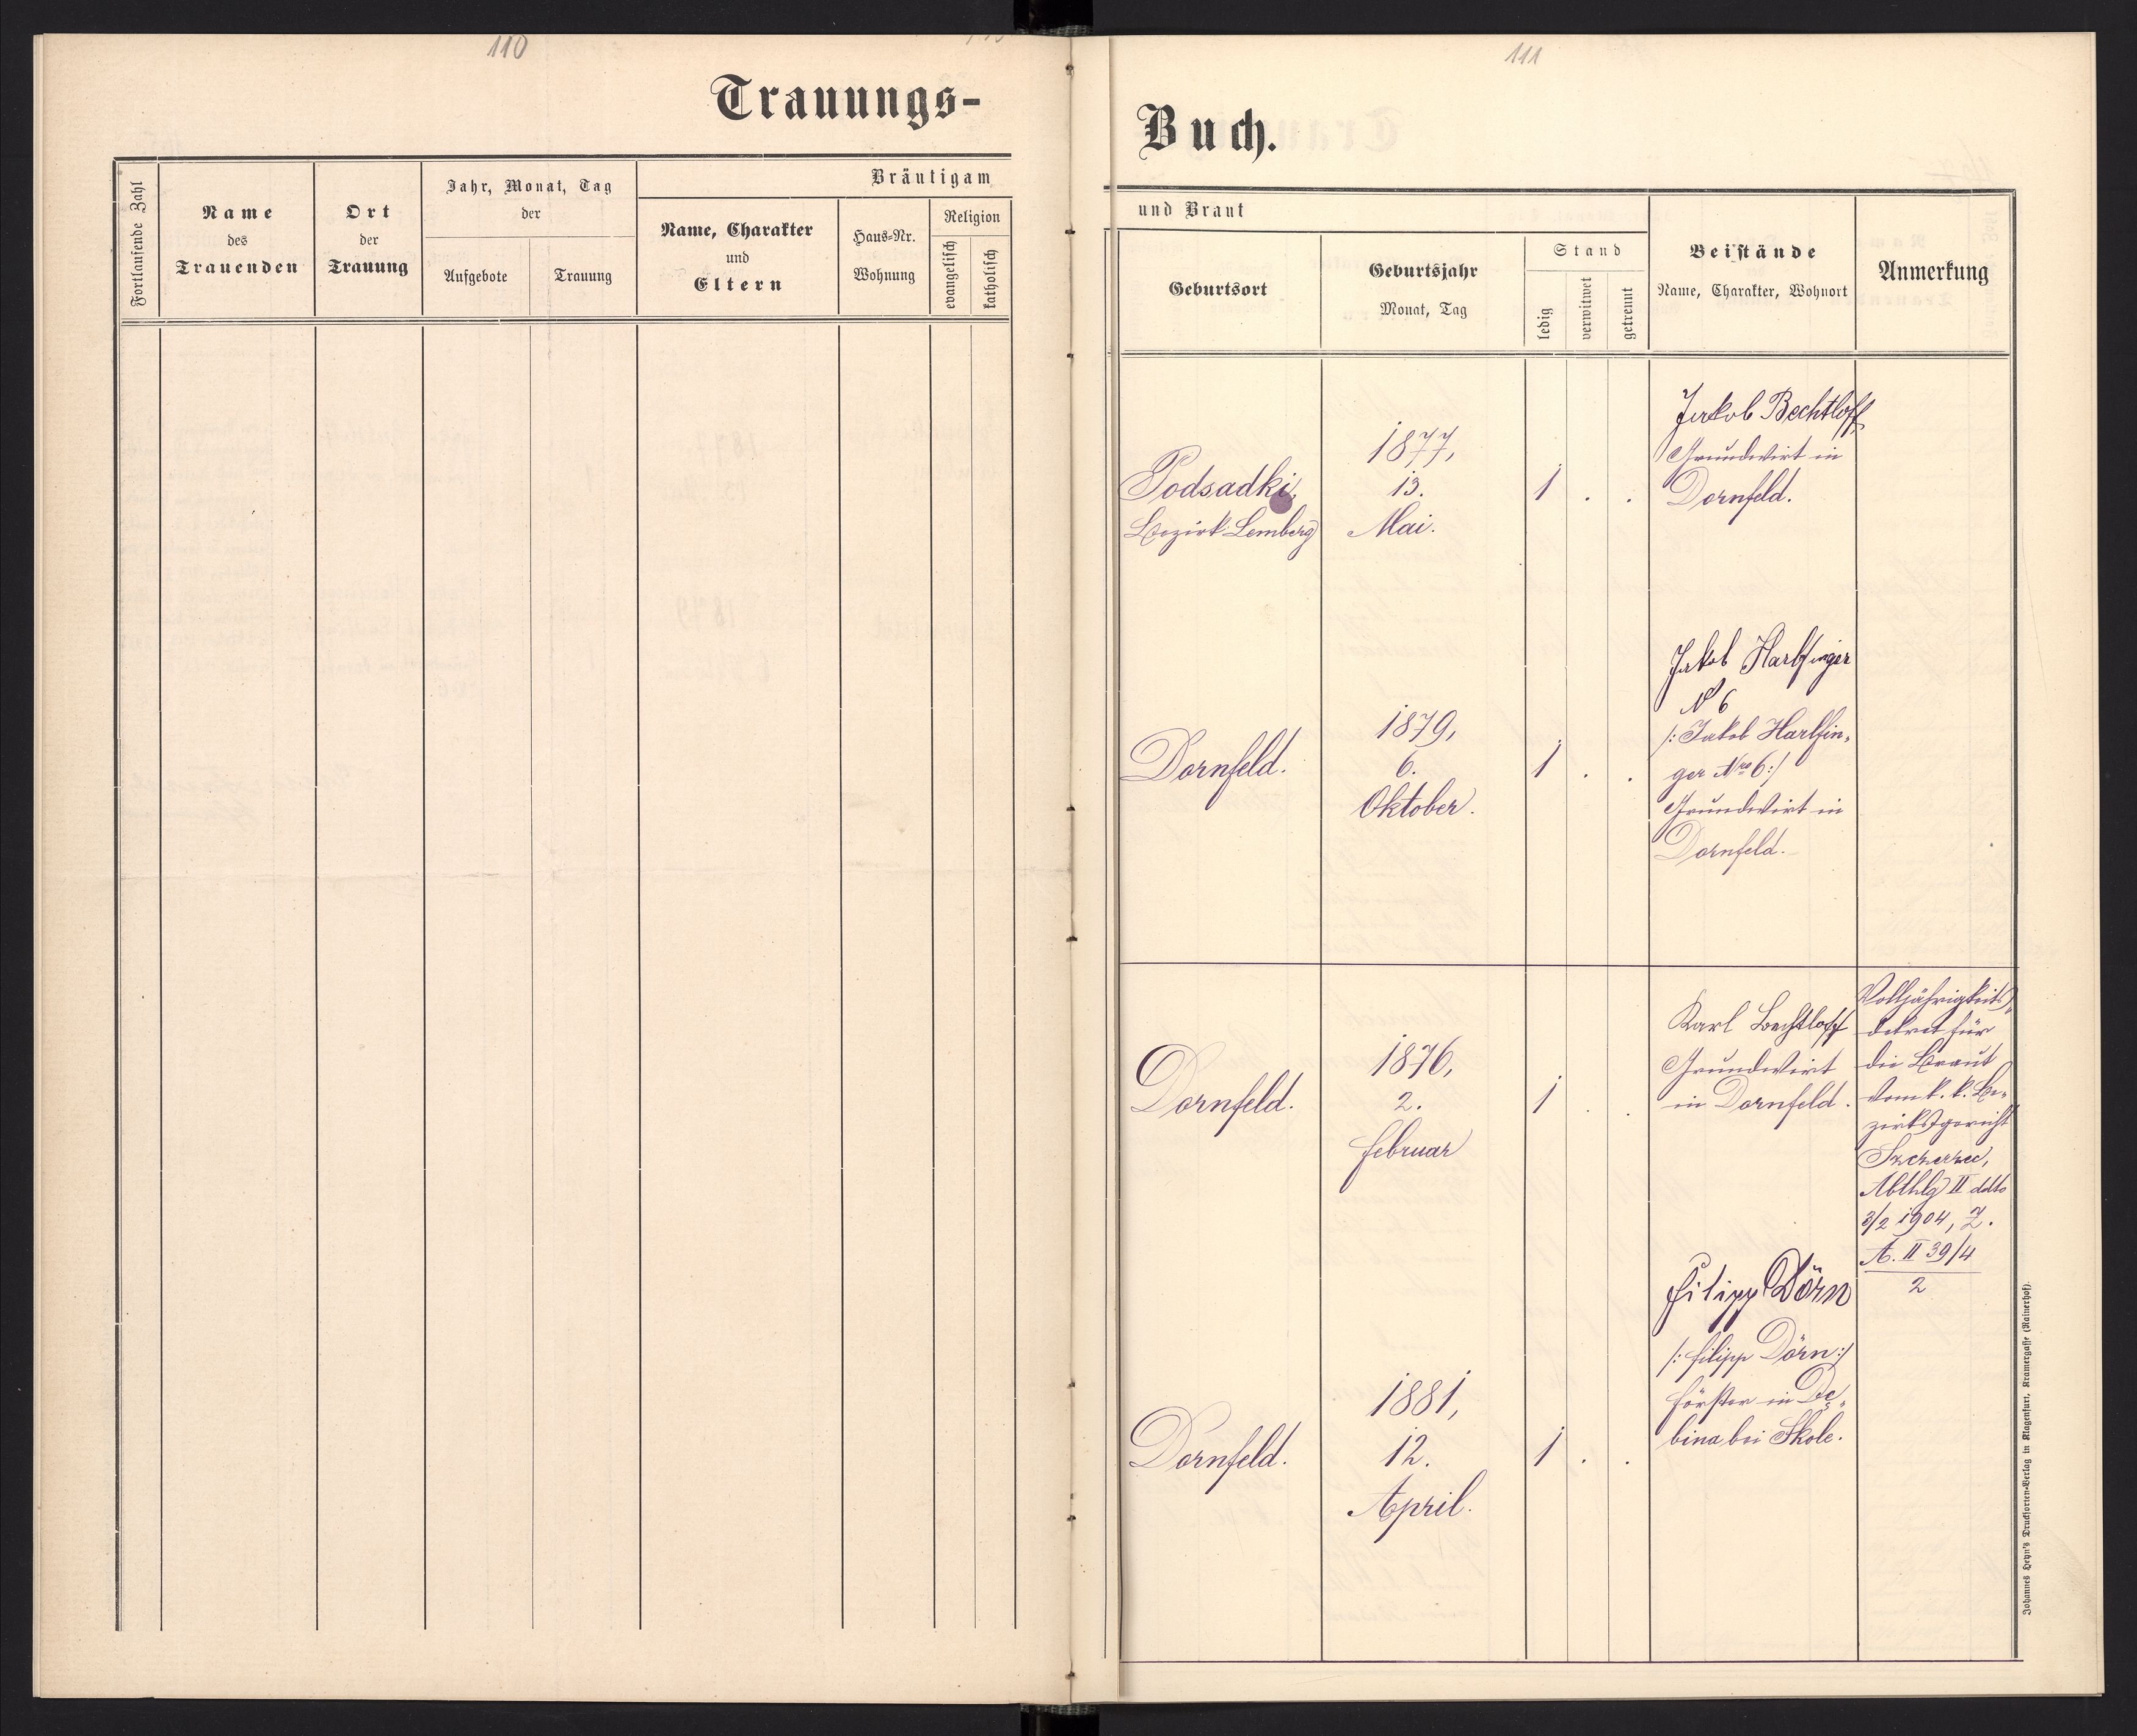 110
Trauungs-
Fortlaufende Zahl
Name
des
Trauenden
Ort
der
Trauung
Jahr, Monat, Tag
der
Aufgebote
Trauung
Bräutigam
Name, Charakter
und
Eltern
Haus-Nr.
Wohnung
Religion
evangelisch
katholisch
111
Buch.
und Braut
Geburtsort
Geburtsjahr
Monat, Tag
Stand
ledig
verwitwet
getrennt
Beistände
Name, Charakter, Wohnort
Anmerkung
Podsadki,
Bezirk Lemberg
1877,
13.
Mai.
1 . .
Jakob Bechtloff
Grundwirt in
Dornfeld.
Dornfeld.
1879,
6.
Oktober.
1 . .
Jakob Harlfinger
N 6
/: Jakob Harlfin„
ger Nro 6 :/
Grundwirt in
Dornfeld.
Dornfeld.
1876,
2.
Februar
1 . .
Karl Bechtloff
Grundwirt
in Dornfeld.
Volljährigkeits„
dekret für
die Braut
vom k. k. Be„
zirksgericht
Szczerzec,
Abthlg II ddto
3/2 1904, Z.
A. II 39/4
2
Dornfeld.
1881,
12.
April.
1 . .
Filipp Dörn
/: Filipp Dörn :/
Förster in De„
bina bei Skole.
Johannes Heyn's Drucksorten-Verlag in Klagenfurt, Kramergasse (Rainerhof)